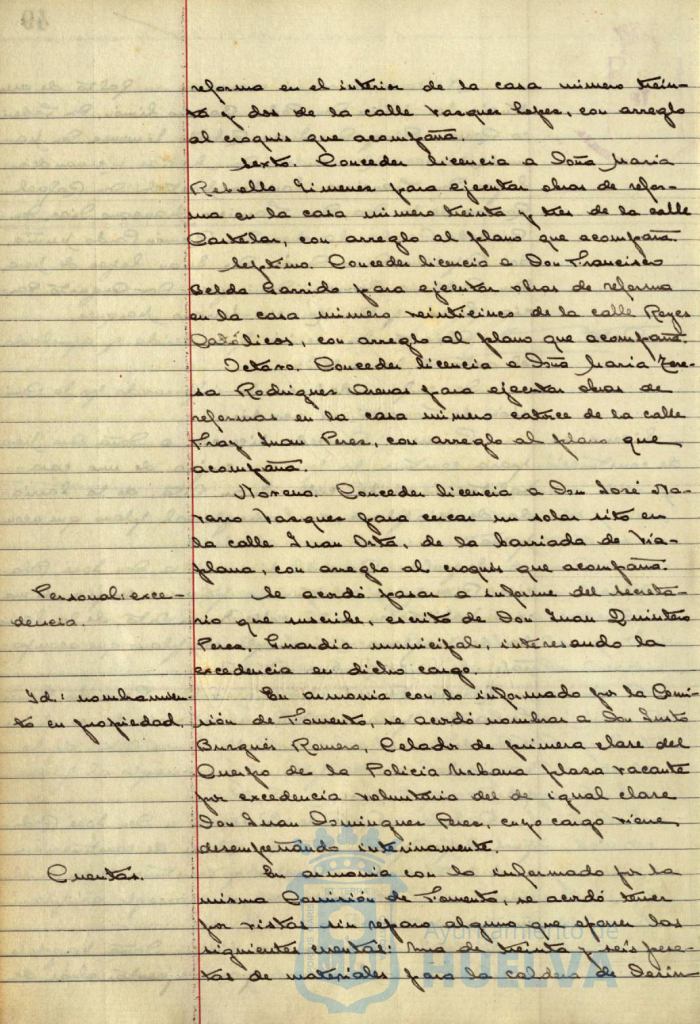 reforma en el interior de la casa número trein-
ta y dos de la calle Vazquez Lopez, con arreglo
al croquis que acompaña.
Sexto. Conceder licencia a Doña Maria
Rebollo Jimenez para ejecutar obras de refor-
ma en la casa número treinta y tres de la calle
Castelar, con arreglo al plano que acompaña.
Septimo. Conceder licencia a Don Francisco
Belda Garrido para ejecutar obras de reforma
en la casa número veinticinco de la calle Reyes
Católicos, con arreglo al plano que acompaña.
Octavo. Conceder licencia a Doña Maria Tere-
sa Rodriguez Arenas para ejecutar obras de
reformas en la casa número catorce de la calle
Fray Juan Perez, con arreglo al plano que
acompaña.
Noveno. Conceder licencia a Don José Na-
varro Vazquez para cercar un solar sito en
la calle Juan Orta, de la barriada de Via-
plana, con arreglo al croquis que acompaña.
Personal: exce-
dencia.
Se acordó pasar a informe del secreta-
rio que suscribe, escrito de Don Juan Quintero
Perez, Guardia municipal, interesando la
excedencia en dicho cargo.
Id: nombramien-
to en propiedad.
En armonia con lo informado por la Comi-
sión de Fomento, se acordó nombrar a Don Justo
Burgués Romero, Celador de primera clase del
Cuerpo de la Policia Urbana plaza vacante
por excedencia voluntaria del de igual clase
Don Juan Dominguez Perez, cuyo cargo viene
desempeñando interinamente.
Cuentas.
En armonia con lo informado por la
misma Comisión de Fomento, se acordó tener
por vistas sin reparo alguno que oponer las
siguientes cuentas: Una de treinta y seis pese-
tas de materiales para la caldera de desin-
Ayuntamiento de
HUELVA